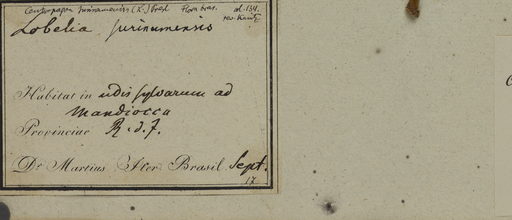 Centropogon surinamensis (L.) Presl Flora bras.
Lobelia surinamensis
Habitat in udis sylvarum ad
Mandiocca
Provinciae R. d. J.
Dr Martius Iter Brasil. Sept.
17